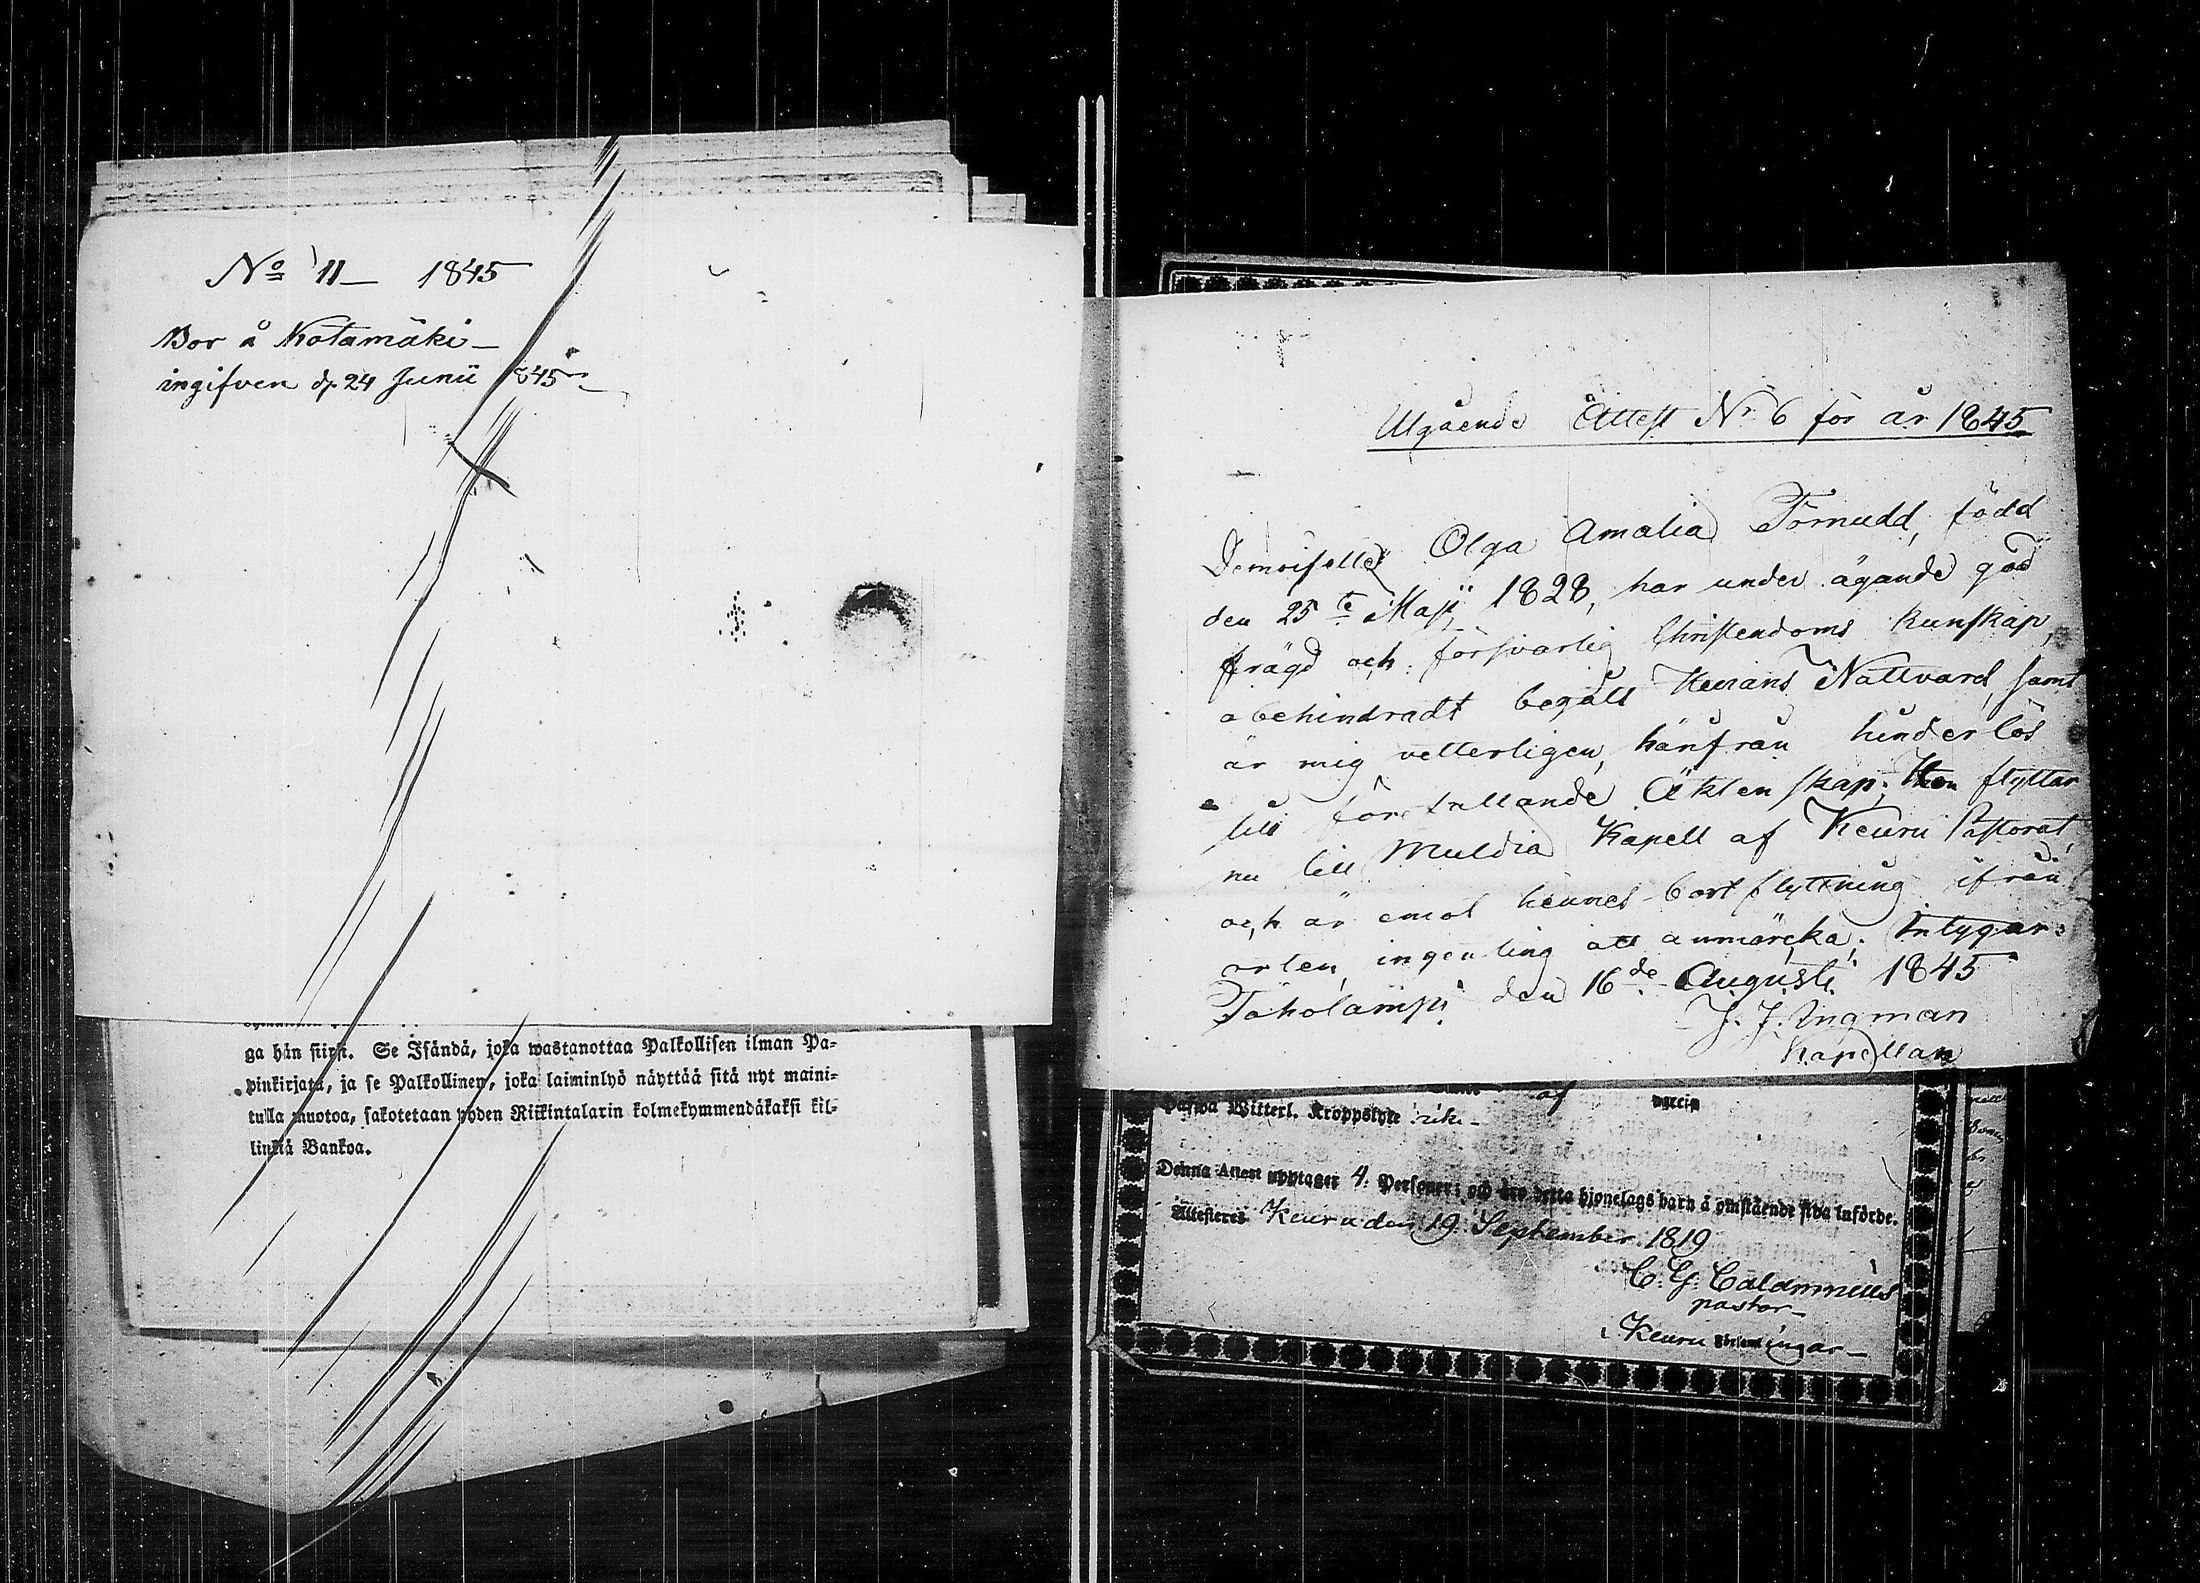 No 11 — 1845
Bor å Kotamäki —
ingifven d. 24 Junii 1845 —
ga hän siirsi. Se Isändä, joka wastanottaa Palkollisen ilman Pa-
pinkirjata, ja se Palkollinen, joka laiminlyö näyttää sitä nyt maini-
tulla muotoa, sakotetaan yhden Riikintalarin kolmekymmendäkaksi kil-
linkiä Bankoa.
Utgående Attest Nr 6 för år 1845
Demoiselle Olga Amalia Törnudd, född
den 25te Maji 1828, har under ägande god
frägd och försvarlig Christendoms kunskap,
obehindradt begått Herrans Nattvard, samt
är mig vetterligen, hänfrån hinderlös
till förestående Äktenskap; Hon flyttar
nu till Muldia Kapell af Keuru Pastorat,
och är emot hennes bortflyttning ifrån
orten ingenting att anmärcka; Intygar.
Toholampi den 16de Augusti 1845
J. J. Ingman
Kapellan
af
Witterl. Kroppslyte
Denna Attest upptager 4. Personer; och äro detta hjonelags barn å omstående sida införde.
Attesteres Keuru den 19 September 1819
C. G. Calamnius
pastor —
i Keuru Församlingar —